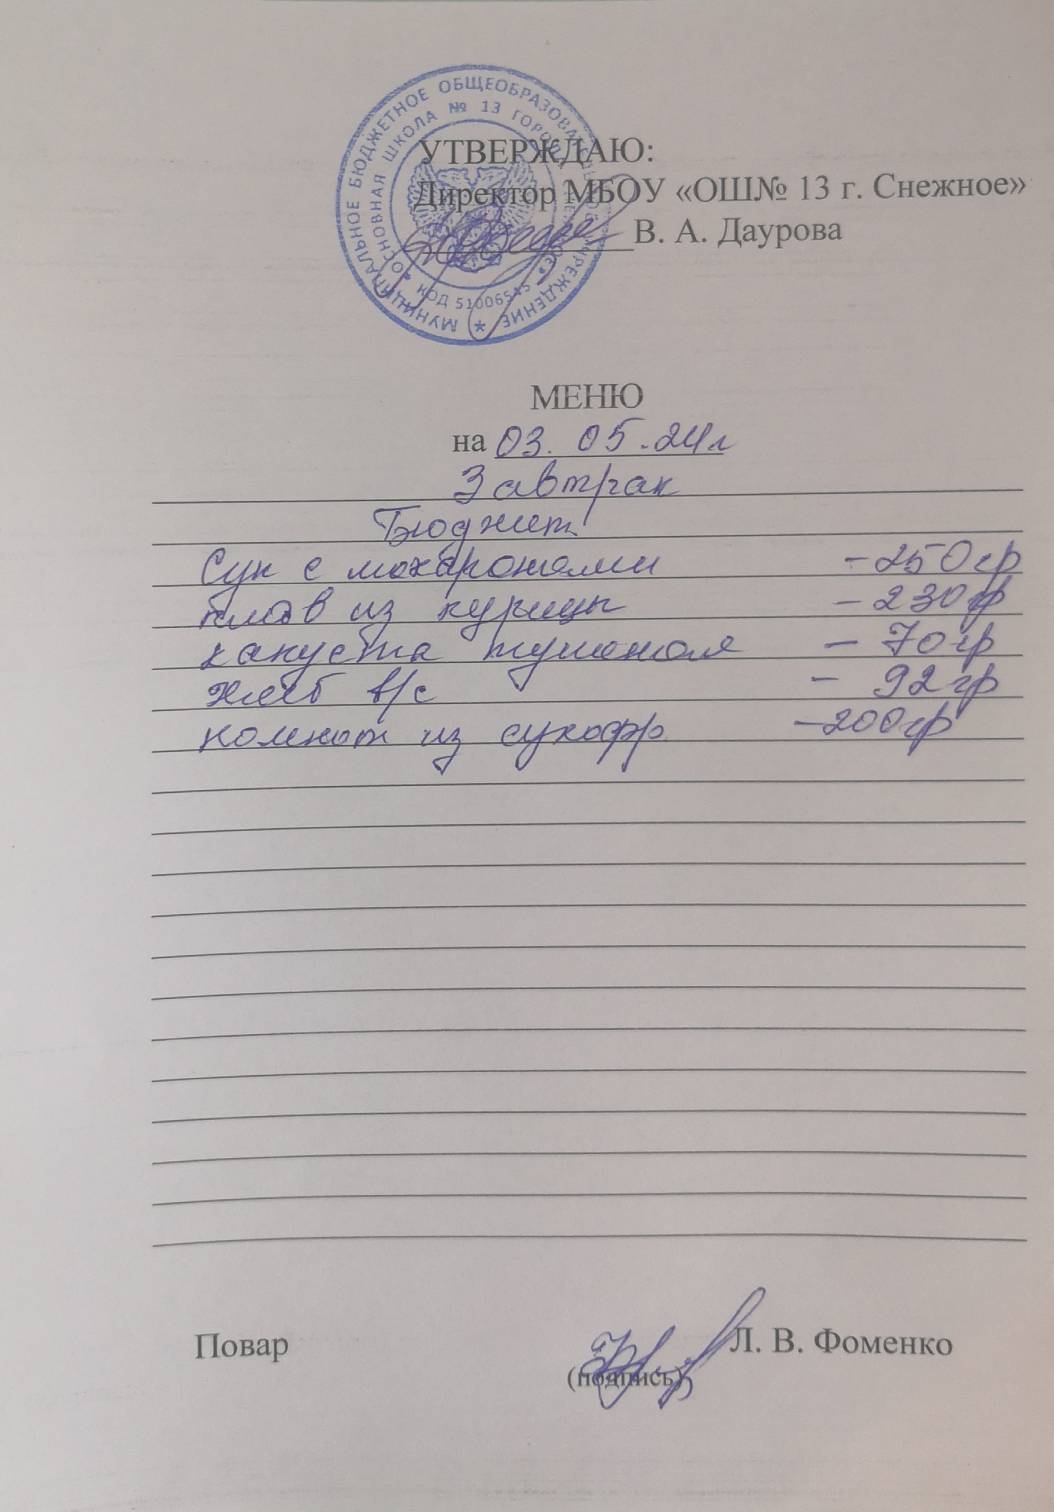 МУНИЦИПАЛЬНОЕ БЮДЖЕТНОЕ ОБЩЕОБРАЗОВАТЕЛЬНОЕ УЧРЕЖДЕНИЕ
ОСНОВНАЯ ШКОЛА № 13 ГОРОДА
КОД 51006545
УТВЕРЖДАЮ:
Директор МБОУ «ОШ№ 13 г. Снежное»
В. А. Даурова
МЕНЮ
на 03.05.24г
Завтрак
Бюджет
Суп с макаронами - 250гр
плов из курицы - 230гр
капуста тушеная - 70гр
хлеб в/с - 92гр
компот из сухофр - 200гр
Повар Л. В. Фоменко
(подпись)